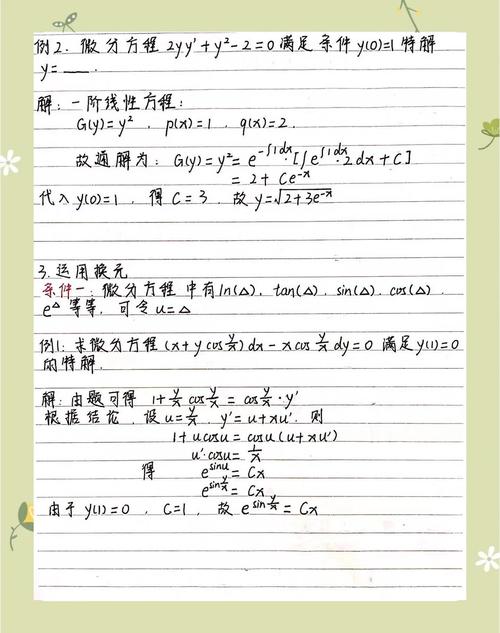 例2. 微分方程 2yy'+y²-2=0 满足条件 y(0)=1 特解
y=___.
解: 一阶线性方程:
G(y)=y², p(x)=1, q(x)=2.
故通解为: G(y)=y²= e^{-∫1dx}·[∫e^{∫1dx}·2dx+C]
= 2+Ce^{-x}
代入 y(0)=1, 得 C=3, 故 y=√(2+3e^{-x})
3.运用换元
条件一: 微分方程中有ln(△), tan(△), sin(△), cos(△),
e^△ 等等, 可令 u=△
例1: 求微分方程(x+ycos y/x)dx-xcos y/x dy=0 满足 y(1)=0
的特解.
解: 由题可得 1+y/x cos y/x = cos y/x · y'
根据结论, 设 u=y/x, y'=u+xu', 则
1+ucosu=cosu(u+xu')
u'·cosu=1/x
得 e^{sinu}=Cx
e^{sin y/x}=Cx
由于 y(1)=0, C=1, 故 e^{sin y/x}=Cx